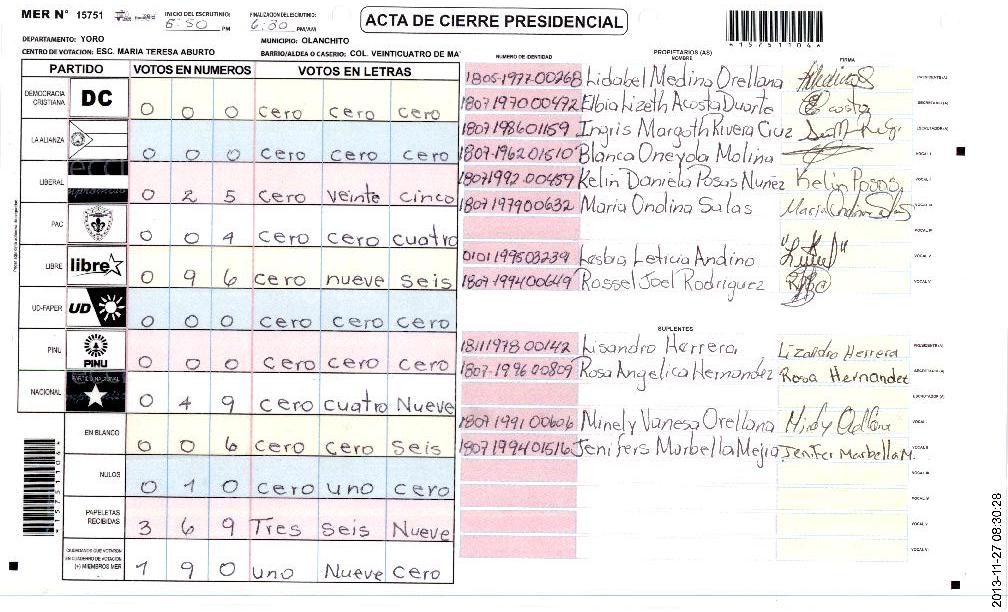 MER N° 15751
INICIO DEL ESCRUTINIO: 5:50 PM
FINALIZACION DEL ESCRUTINIO: 6:30 PM/AM
ACTA DE CIERRE PRESIDENCIAL
*15751104*
DEPARTAMENTO: YORO
MUNICIPIO: OLANCHITO
CENTRO DE VOTACION: ESC. MARIA TERESA ABURTO
BARRIO/ALDEA O CASERIO: COL. VEINTICUATRO DE MA
PARTIDO VOTOS EN NUMEROS VOTOS EN LETRAS
DEMOCRACIA CRISTIANA DC 0 0 0 cero cero cero
LA ALIANZA 0 0 0 cero cero cero
LIBERAL 0 2 5 cero veinte cinco
PAC 0 0 4 cero cero cuatro
LIBRE libre 0 9 6 cero nueve seis
UD-FAPER UD 0 0 0 cero cero cero
PINU PINU 0 0 0 cero cero cero
NACIONAL 0 4 9 cero cuatro Nueve
EN BLANCO 0 0 6 cero cero Seis
NULOS 0 1 0 cero uno cero
PAPELETAS RECIBIDAS 3 6 9 Tres seis Nueve
CIUDADANOS QUE VOTARON EN CUADERNO DE VOTACION (+) MIEMBROS MER 1 9 0 uno Nueve cero
*15751104*
PROPIETARIOS (AS)
NUMERO DE IDENTIDAD NOMBRE FIRMA
1805-1977-00268 Lidabel Medina Orellana PRESIDENTE(A)
1807197000472 Elbia Lizeth Acosta Duarte SECRETARIO(A)
1807198601159 Ingris Margoth Rivera Cruz ESCRUTADOR(A)
1807-196201510 Blanca Oneyda Molina VOCAL I
1807-1992-00459 Kelin Daniela Posas Nuñez Kelin Posas VOCAL II
1807197900632 Maria Ondina Salas Maria Ondina Salas VOCAL III
VOCAL IV
0101199503239 Lesbia Leticia Andino VOCAL V
1807-199400649 Rossel Joel Rodriguez VOCAL VI
SUPLENTES
1811197800142 Lisandro Herrera Lizandro Herrera PRESIDENTE(A)
1807-199600809 Rosa Angelica Hernandez Rosa Hernandez SECRETARIO(A)
ESCRUTADOR(A)
1807199100606 Minely Vanesa Orellana VOCAL I
1807199401516 Jenifers Marbella Mejia Jenifer Marbella M. VOCAL II
VOCAL III
VOCAL IV
VOCAL V
VOCAL VI
2013-11-27 08:30:28